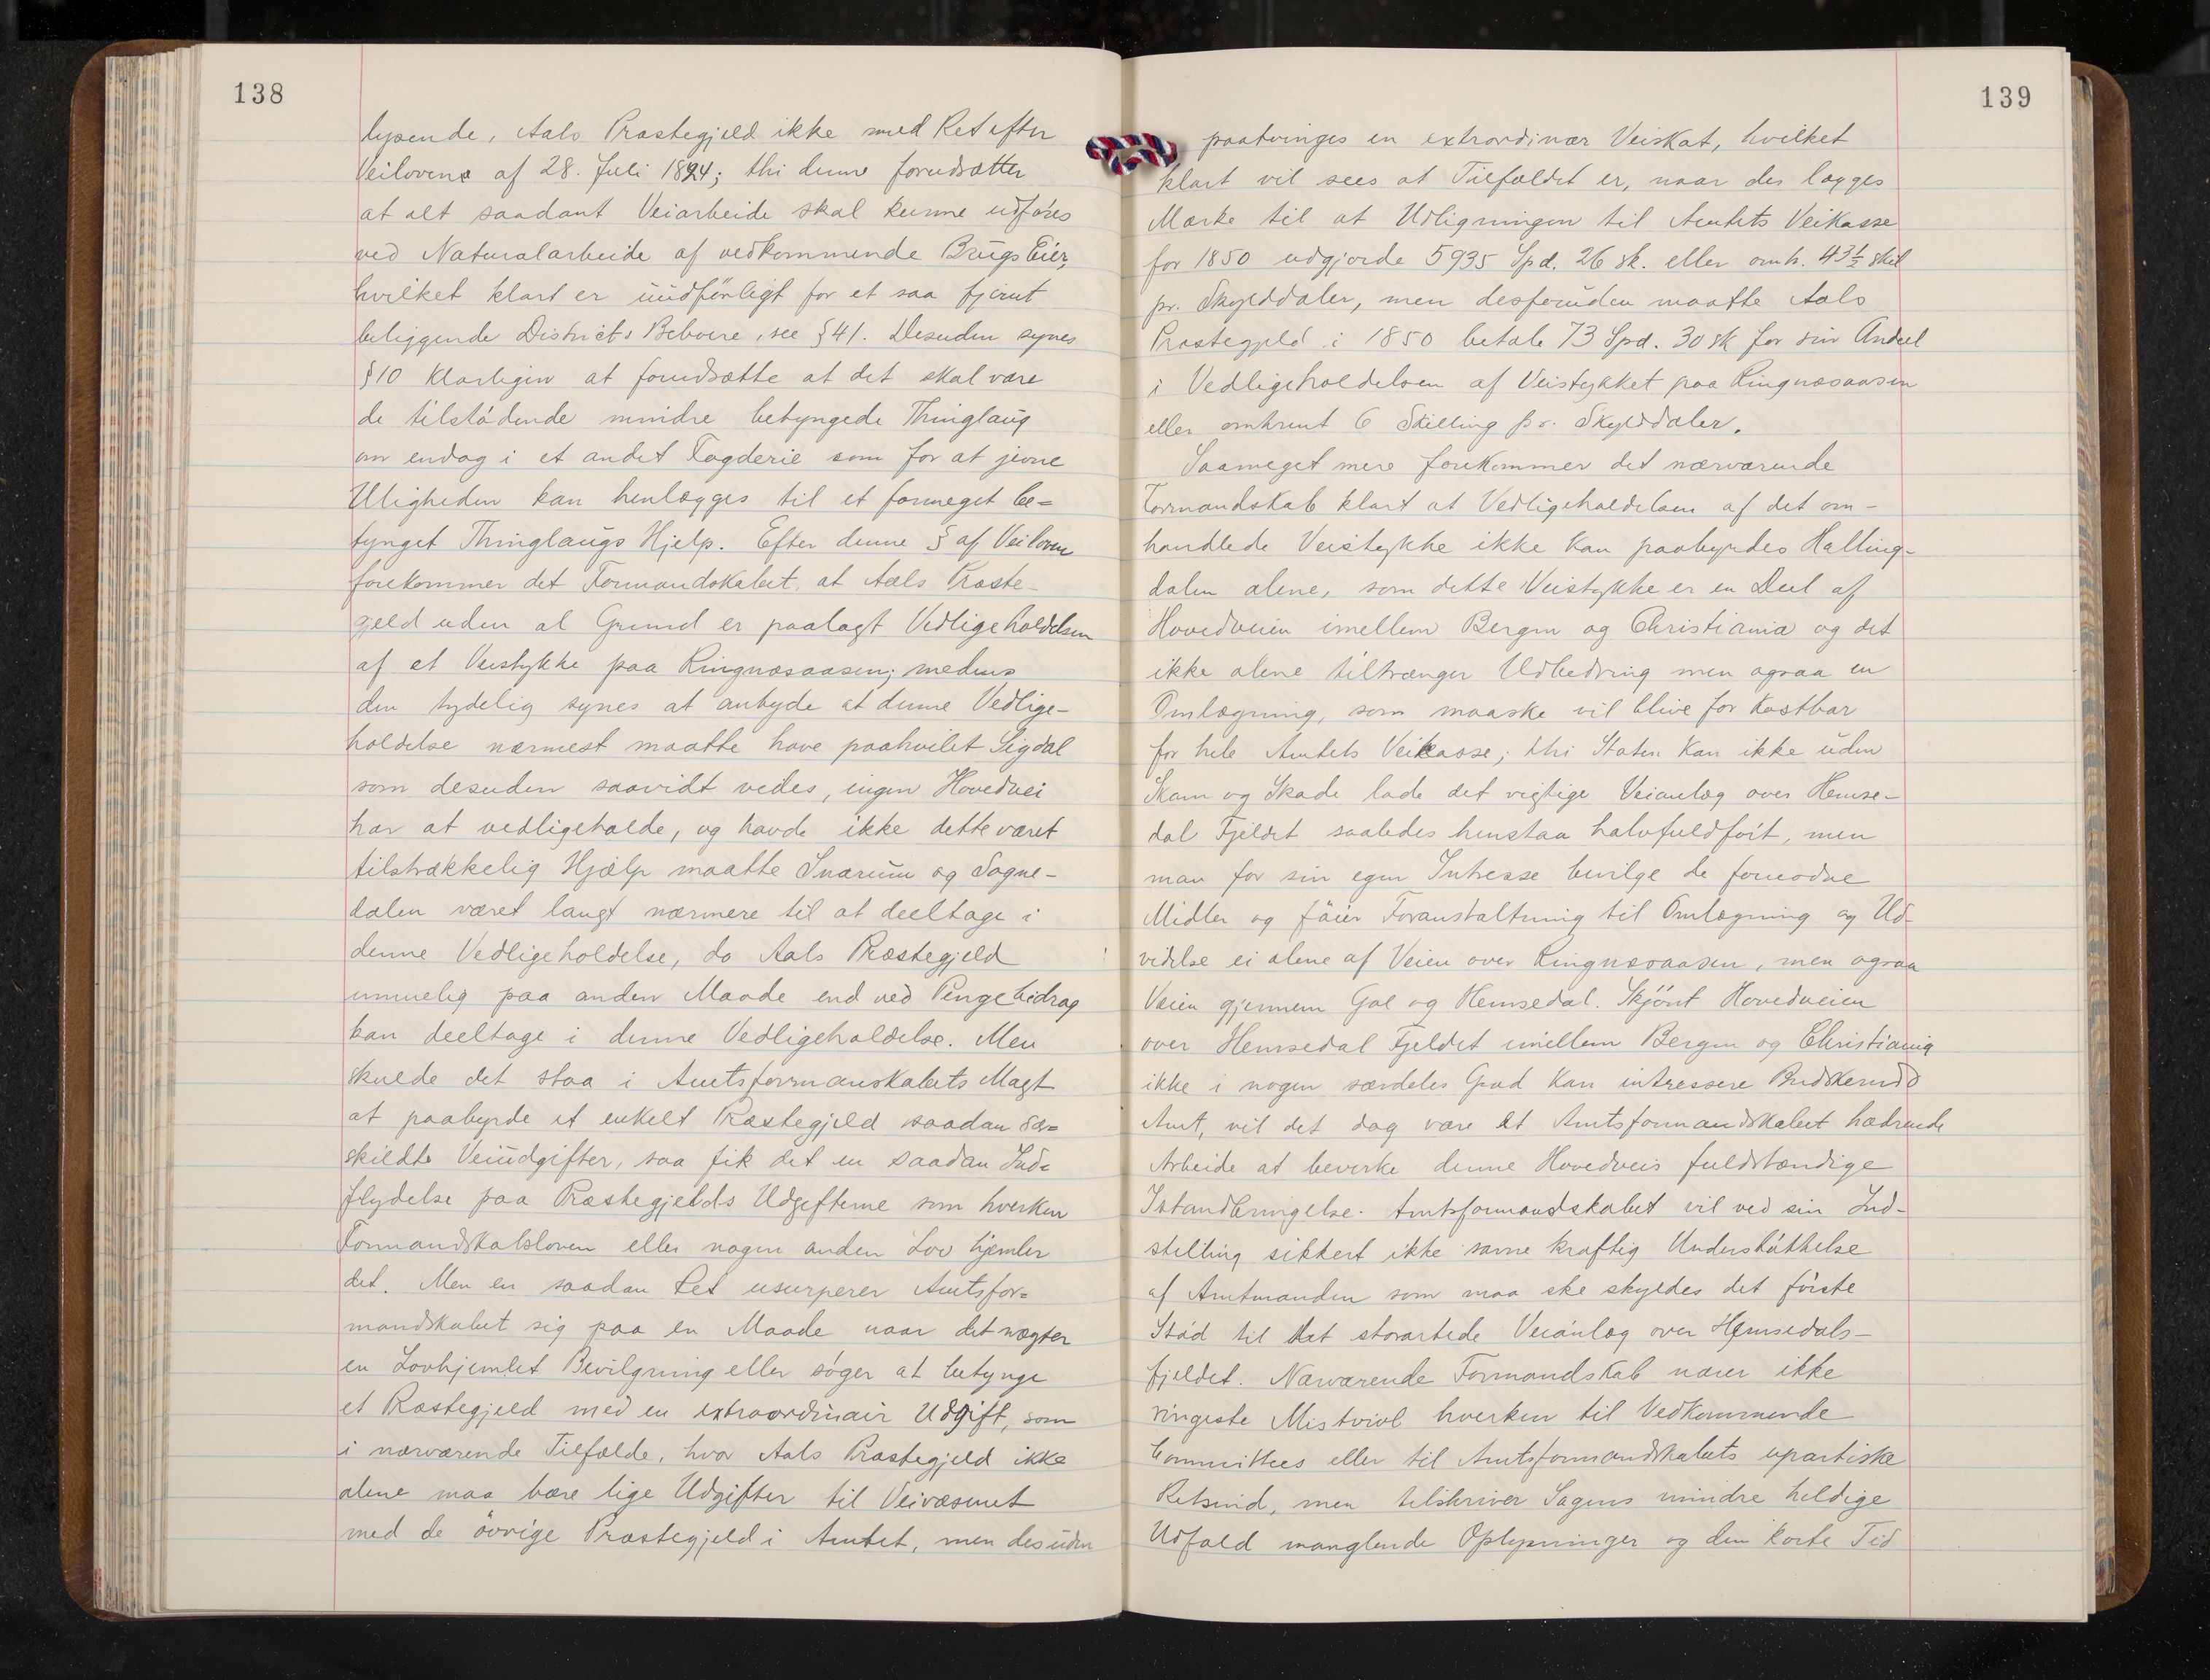 138
lysende, Aals Præstegjeld ikke med Ret efter
Veilovens af 28. Juli 1824; thi denne forudsætter
at alt saadant Veiarbeide skal kunne udføres
ved Naturalarbeide af vedkommende Brugs Eier,
hvilket klart er uudførligt for et saa fjernt
beliggende Districts Beboere, see §41. Desuden synes
§10 klarligen at forudsætte at det skal være
de tilstødende mindre betyngede Thinglaug
om endog i et andet Fogderie som for at jevne
Uligheden kan henlægges til et formeget be=
tynget Thinglaugs Hjelp. Efter denne § af Veiloven
forekommer det Formandskabet, at Aals Præste-
gjeld uden al Grund er paalagt Vedligeholdelsen
af et Veistykke paa Ringnæsaasen; medens
den tydelig synes at antyde at denne Vedlige-
holdelse nærmest maatte have paahvilet Sigdal
som desuden saavidt vides, ingen Hovedvei
har at vedligeholde, og havde ikke dette været
tilstrækkelig Hjælp maatte Snarum og Sogne-
dalen været langt nærmere til at deeltage i
denne Vedligeholdelse, da Aals Præstegjeld
umuelig paa anden Maade end ved Pengebidrag
kan deeltage i denne Vedligeholdelse. Men
skulde det staa i Amtsformanskabets Magt
at paabyrde et enkelt Præstegjeld saadan sær=
skildte Veiudgifter, saa fik det en saadan Ind=
flydelse paa Præstegjelds Udgifterne som hverken
Formandskabsloven eller nogen anden Lov hjemler
det. Men en saadan Ret usurperer Amtsfor=
mandskabet sig paa en Maade naar det nægter
en Lovhjemlet Bevilgning eller søger at betynge
et Præstegjeld med en extraordinair Udgift, som
i nærværende Tilfælde, hvor Aals Præstegjeld ikke
alene maa bære lige Udgifter til Veivæsenet
med de øvrige Præstegjeld i Amtet, men desuden
139
paatvinges en extrordinær Veiskat, hvilket
klart vil sees at Tilfældet er, naar der lægges
Mærke til at Udligningen til Amtets Veikasse
for 1850 udgjorde 5935 Spd. 26 sk. eller omtr. 43½ skil
pr. Skylddaler, men desforuden maatte Aals
Præstegjeld i 1850 betale 73 Spd. 30 sk for sin Andeel
i Vedligeholdelsen af Veistykket paa Ringnæsaasen
eller omtrent 6 Skilling pr. Skylddaler.
Saameget mere forekommer det nærværende
Formandskab klart at Vedligeholdelsen af det om-
handlede Veistykke ikke kan paabyrdes Halling-
dalen alene, som dette Veistykke er en Deel af
Hovedveien imellem Bergen og Christiania og det
ikke alene tiltrænger Udbedring men ogsaa en
Omlægning, som maaske vil blive for Kostbar
for hele Amtets Veikasse; thi Staten kan ikke uden
Skam og Skade lade det vigtige Veianlæg over Hemse-
dal Fjeldet saaledes henstaa halvfuldført, men
maa for sin egen Intresse bevilge de fornødne
Midler og føier Foranstaltning til Omlægning og Ud-
videlse ei alene af Veien over Ringnæsaasen, men ogsaa
Veien gjennem Gol og Hemsedal. Skjønt Hovedveien
over Hemsedal Fjeldet imellem Bergen og Christiania
ikke i nogen særdeles Grad kan intressere Buskeruds
Amt, vil det dog være et Amtsformandskabet hædrende
Arbeide at bevirke denne Hovedveis fuldstændige
Istandbringelse. Amtsformandskabet vil ved sin Ind-
stilling sikkert ikke savne kraftig Understøttelse
af Amtmanden som maa ske skyldes det første
Stød til det storartede Veianlæg over Hemsedals-
fjeldet. Nærværende Formandskab nærer ikke
ringeste Mistvivl hverken til Vedkommende
Committees eller til Amtsformandskabets upartiske
Retsind, men tilskriver Sagens mindre heldige
Udfald manglende Oplysninger og den korte Tid